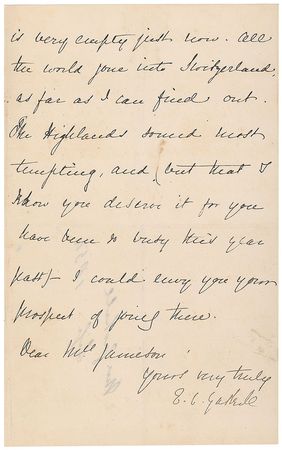 is very empty just now. All
the world gone into Switzerland,
as far as I can find out.
The Highlands sound most
tempting, and (but that I
know you deserve it for you
have been so busy this year
past)– I could envy you your
prospect of going there.
Dear Mrs Jameson
Yours very truly
E. C. Gaskell